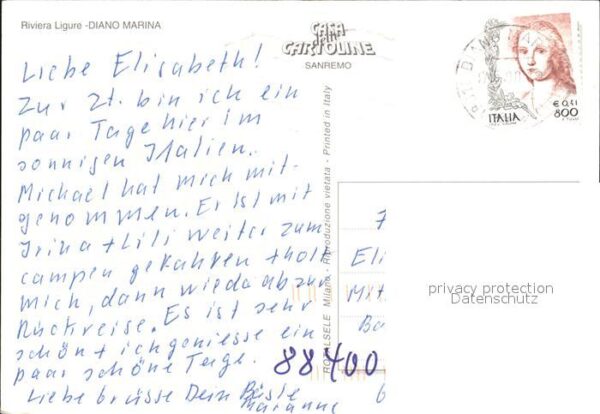 Riviera Ligure -DIANO MARINA
CASA
della
CARTOLINE
SANREMO
Liebe Elisabeth!
Zur Zt. bin ich ein
paar Tage hier im
sonnigen Italien.
Michael hat mich mit-
genommen. Er ist mit
Irina + Lili weiter zum
campen gefahren + holt
mich, dann wieda ab zur
Rückreise. Es ist sehr
schön + ich geniesse ein
paar schöne Tage.
Liebe Grüsse Dein Bäsle
Marianne
Milano - Riproduzione vietata - Printed in Italy
ITALIA
€ 0,41
800
Eli
Mit
Ba
88400
privacy protection
Datenschutz